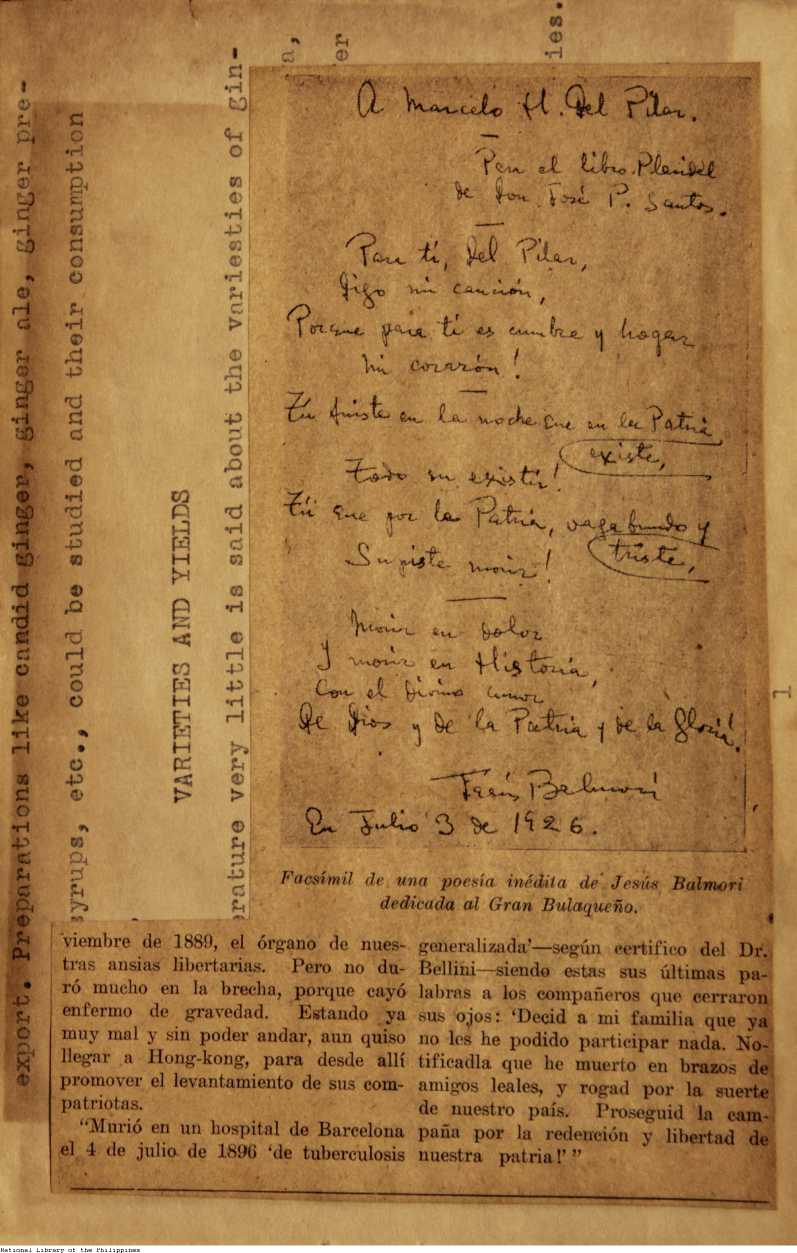 A Marcelo H. Del Pilar.
Para el libro Plaridel
de Don José P. Santos.
Para tí, Del Pilar,
Digo mi canción,
Porque para tí es cumbre y hogar
Mi corazón!
Tú fuiste en la noche que en la Patria
existe,
Todo su existir!
Tú que por la Patria, vagabundo y
triste,
Supiste morir!
Morir en dolor
Y morir en Historia,
Con el Divino amor
De Dios y de la Patria y de la Gloria!
Jesús Balmori
En Julio 3 de 1926.
Facsímil de una poesía inédita de Jesús Balmori
dedicada al Gran Bulaqueño.
viembre de 1889, el órgano de nues-
tras ansias libertarias. Pero no du-
ró mucho en la brecha, porque cayó
enfermo de gravedad. Estando ya
muy mal y sin poder andar, aun quiso
llegar a Hong-kong, para desde allí
promover el levantamiento de sus com-
patriotas.
"Murió en un hospital de Barcelona
el 4 de julio de 1896 'de tuberculosis
generalizada'—según certifico del Dr.
Bellini—siendo estas sus últimas pa-
labras a los compañeros que cerraron
sus ojos: 'Decid a mi familia que ya
no les he podido participar nada. No-
tificadla que he muerto en brazos de
amigos leales, y rogad por la suerte
de nuestro país. Proseguid la cam-
paña por la redención y libertad de
nuestra patria!' "
export. Preparations like candid ginger, ginger ale, ginger pre-
syrups, etc., could be studied and their consumption
VARIETIES AND YIELDS
erature very little is said about the variesties of gin-
ies.
1
National Library of the Philippines